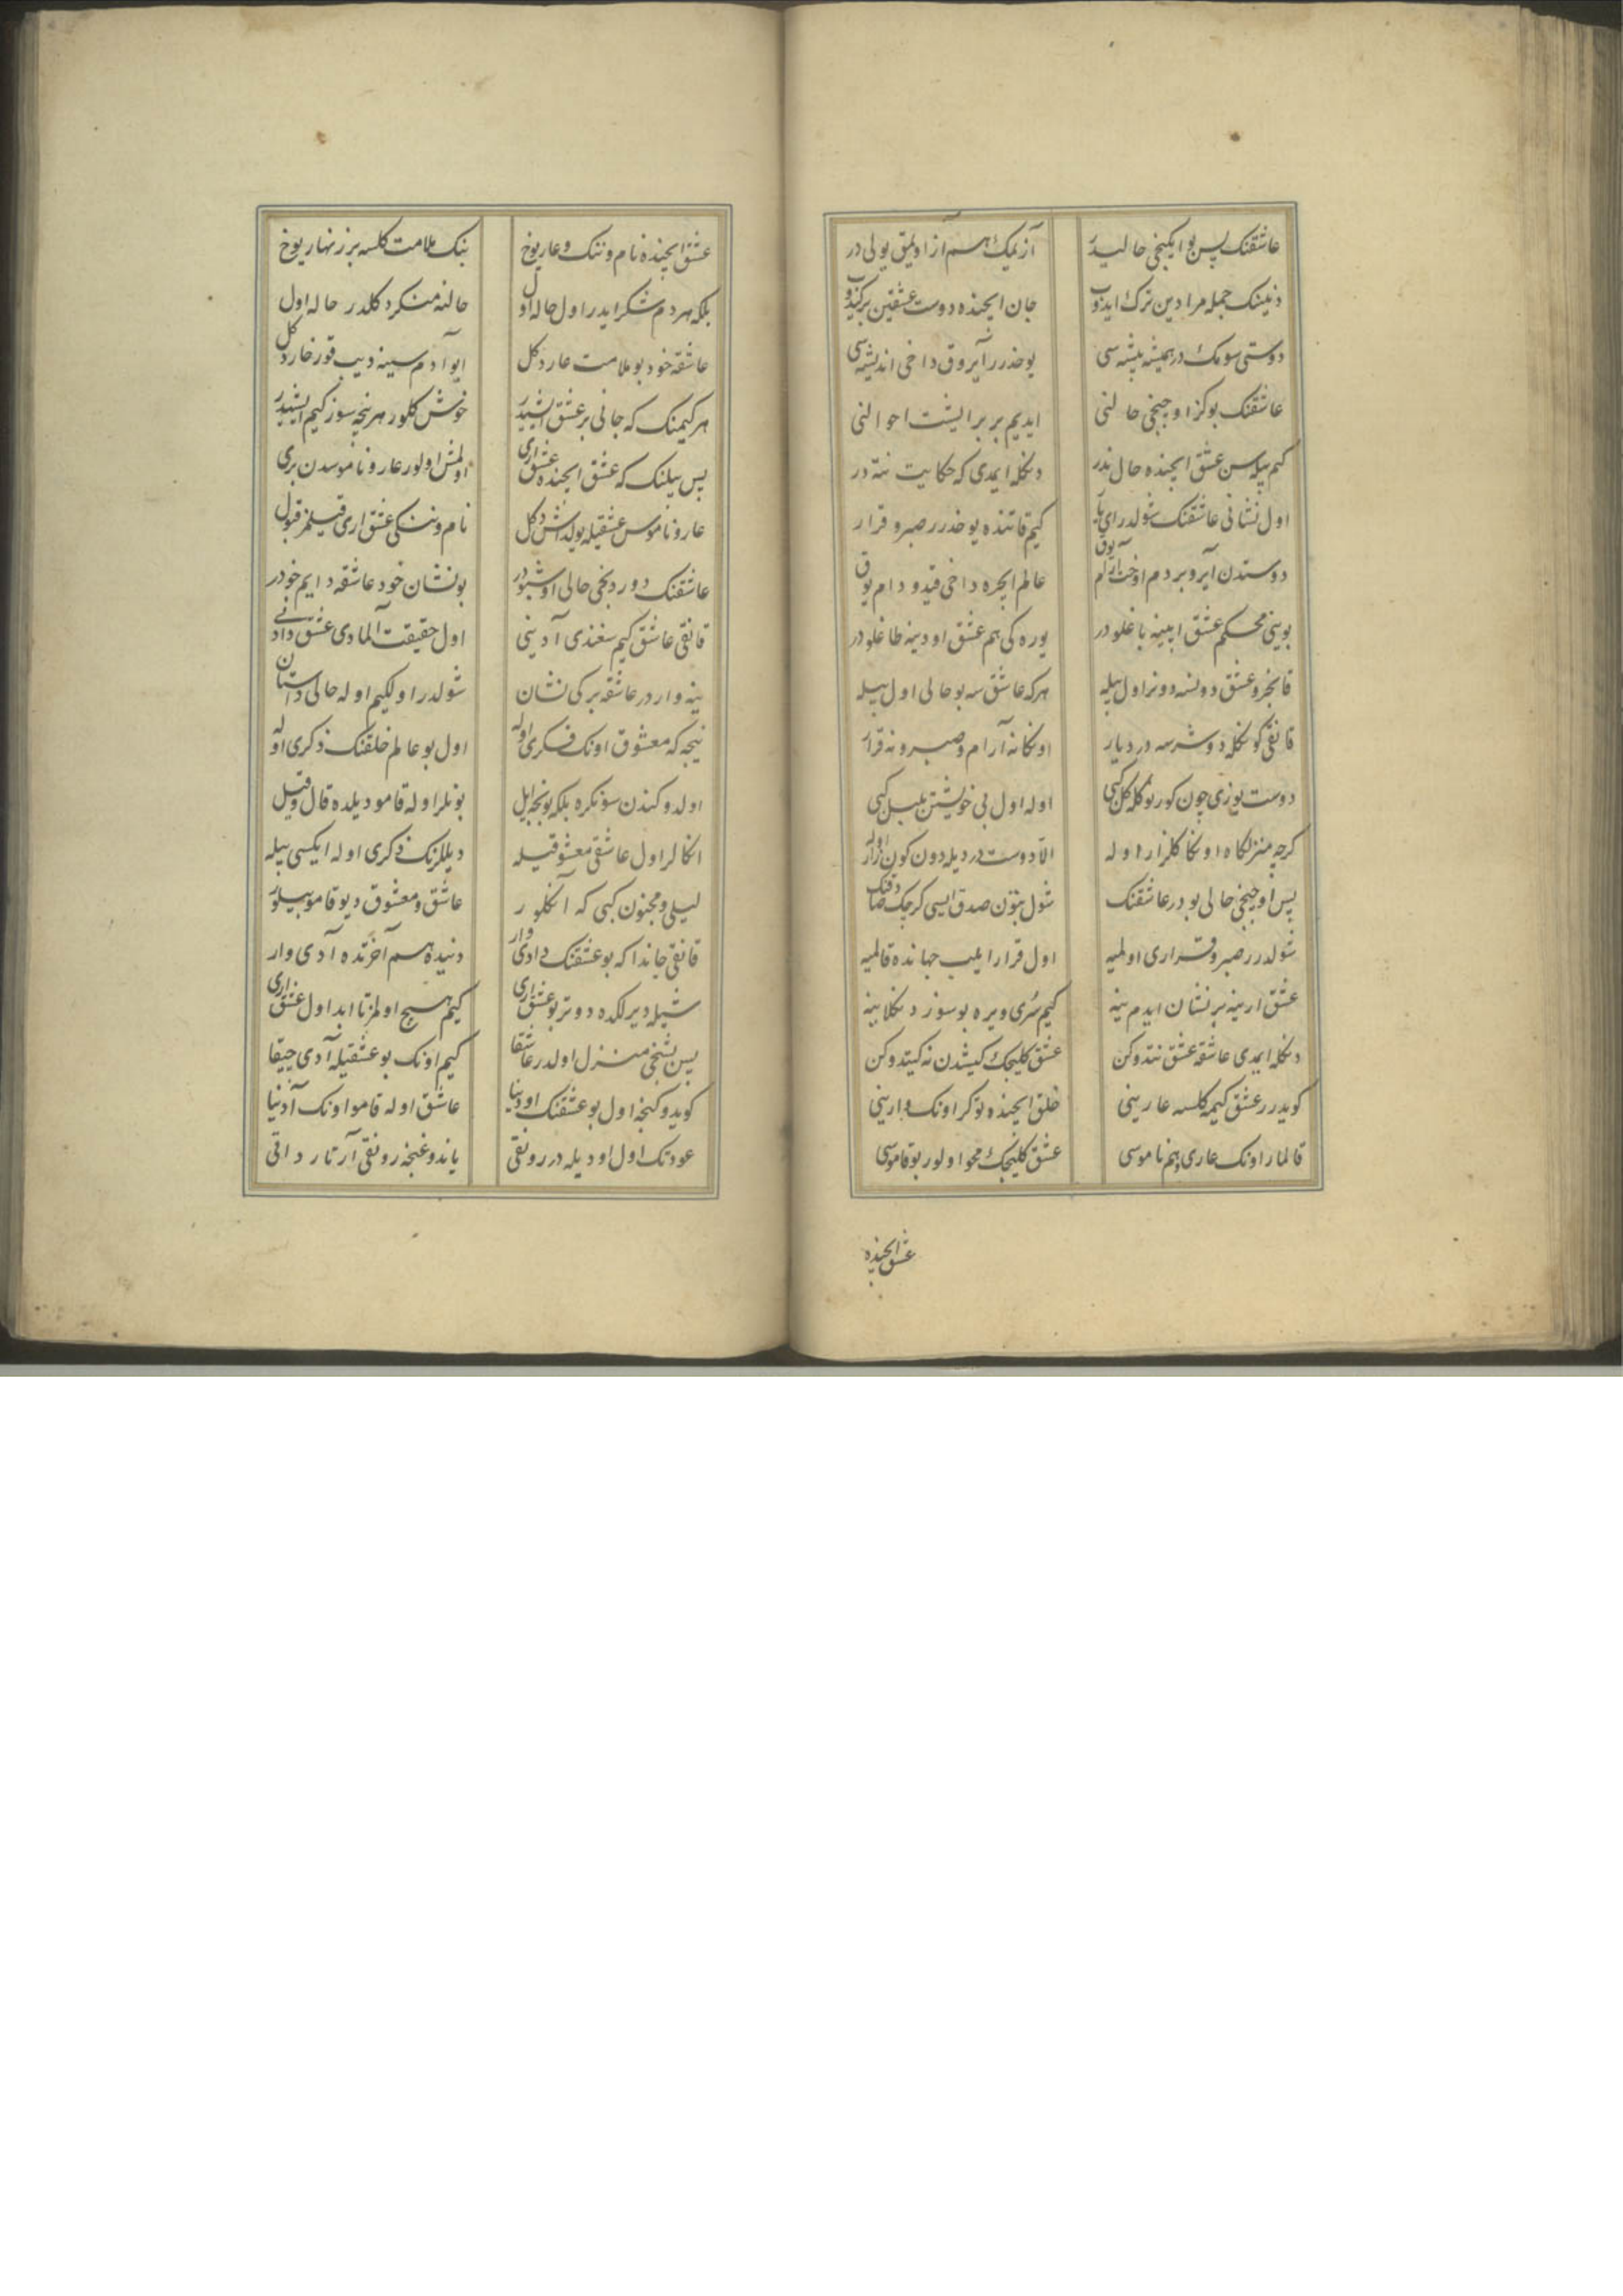 عاشقنك پس بو ايكنجی حاليدر آز يمك هم آز اويمق يولی در
دنينك جمله مرادين ترك ايدوب جان ايچنده دوست عشقين بركيدوب
دوستی سومك در هميشه پيشه سی يوخدرر آيروق داخی انديشه سی
عاشقنك بو كز اوچنجی حالنی ايديم بر بر ايشت احوالنی
كيم بيله سن عشق ايچنده حال ندر دنكله ايمدی كه حكايت نته در
اول نشانی عاشقنك شولدر ای يار كيم قاتنده يوخدرر صبر و قرار
دوستدن آيرو بر دم اوخت آرام يوق عالم ايچره داخی قيد و دام يوق
بوينی محكم عشق ايپينه باغلودر يوره كی هم عشق اودينه طاغلودر
قانجرو عشق دونسه دونر اول بيله هركه عاشق سه بو حالی اول بيله
قانقی كونكله دوشرسه درد يار اونكا نه آرام و صبر و نه قرار
دوست يوزی چون كورنو كله كل كبی اوله اول بی خويشتن بلبل كبی
كرچه منزلكاه اونكا كلزار اوله الا دوست در ديله دون كون زار اوله
پس اوچنجی حالی بودر عاشقنك شول بتون صدق ايسی كرچك صادقنك
شولدرر صبر و قراری اولميه اول قرار ايليب جهانده قالميه
عشق ارينه بر نشان ايدم ينه كيم سری ويره بو سوز دنكلاينه
دنكله ايمدی عاشقه عشق نتدوكن عشق كليجك كيشدن نه كيتدوكن
كويدرر عشق كيمه كلسه عارينی خلق ايچنده توكر اونك وارينی
قالمار اونك عاری هم ناموسی عشق كليجك محو اولور بو قاموسی
عشق ايچنده
عشق ايچنده نام و ننك و عار يوخ بنك ملامت كلسه بزر نهار يوخ
بلكه هر دم شكر ايدر اول حاله اول حالنه منكر دكلدر حاله اول
عاشقه خود بو ملامت عار دكل ايو آدم سينه ديب قور خار دكل
هر كيمنك كه جانی بر عشق ايشيدر خوش كلور هر نيجه سوز كيم ايشيدر
پس بيلنك كه عشق ايچنده عشق اری اولمش اولور عار و ناموسدن بری
عار و ناموس عشقيله يولداش دكل نام و ننكی عشق اری قيلمز قبول
عاشقنك دوردنجی حالی اوشبودر بو نشان خود عاشقه دايم خودر
قانقی عاشق كيم سغندی آدينی اول حقيقت آلمادی عشق دادينی
ينه واردر عاشقه بر كی نشان شولدر اولكيم اوله حالی داستان
نيجه كه معشوق اونك فكری اوله اول بو عالم خلقنك ذكری اوله
اولدوكندن سونكره بلكه بونجه ايل بونلر اوله قامو ديلده قال و قيل
انكالر اول عاشقی معشوقيله ديللرنك ذكری اوله ايكسی بيله
ليلی و مجنون كبی كه آنكلور عاشق و معشوق ديو قامو بيلور
قانقی جاندا كه بو عشقنك دادی وار دنيده هم آخرتده آدی وار
شيله ديرلكده دوتر بو عشق اری كيم هيچ اولمز تا ابد اول عشق اری
پس بشنجی منزل اولدر عاشقا كيم اونك بو عشقيله آدی چيقا
كويدوكنجه اول بو عشقنك اودينا عاشق اوله قامو اونك آدينا
عود تك اول اوديله در رونقی ياندوغنجه رونقی آرتار داقی